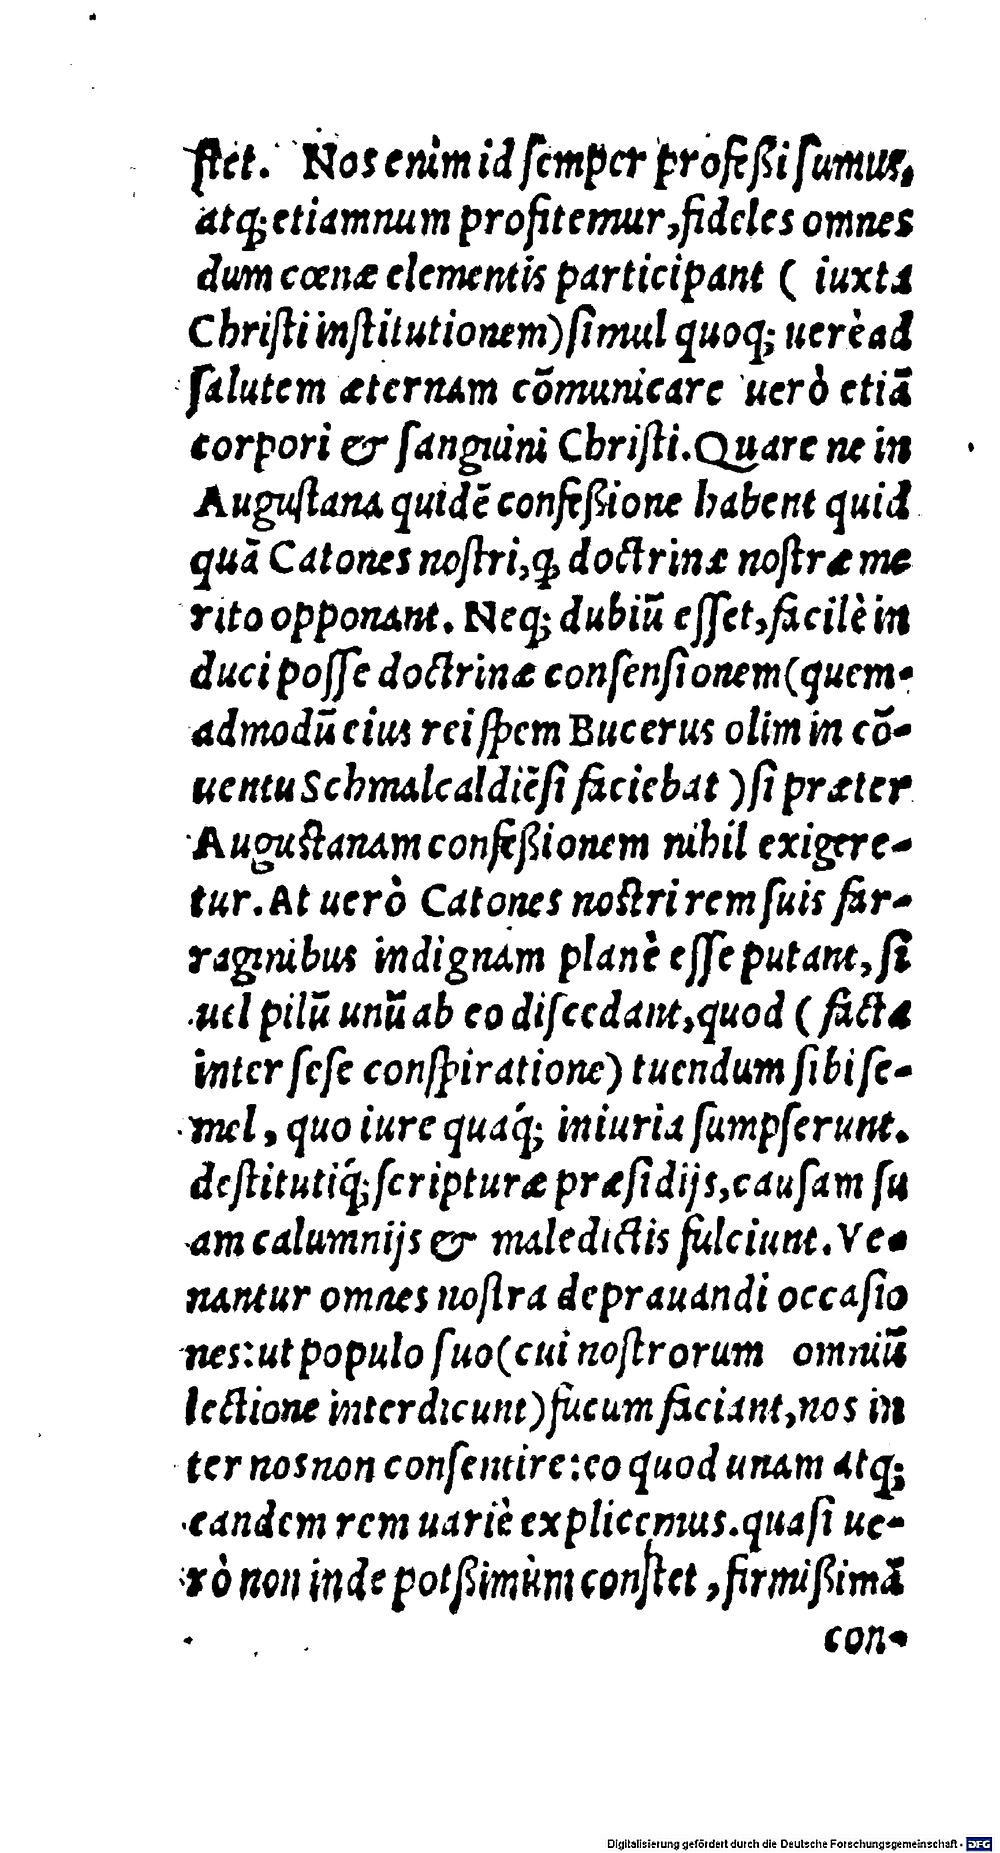 ſtet. Nos enim id ſemper profeßi ſumus,
atq; etiamnum profitemur, fideles omnes
dum cœnæ elementis participant ( iuxta
Chriſti inſtitutionem) ſimul quoq; uerè ad
ſalutem æternam cõmunicare uerò etiã
corpori & ſanguini Chriſti. Quare ne in
Auguſtana quidẽ confeßione habent quid
quã Catones noſtri, q̃ doctrinæ noſtræ me
rito opponant. Neq; dubiũ eſſet, facilè in
duci poſſe doctrinæ conſenſionem (quem-
admodũ eius rei ſpem Bucerus olim in cõ-
uentu Schmalcaldiẽſi faciebat ) ſi præter
Auguſtanam confeßionem nihil exigere-
tur. At uerò Catones noſtri rem ſuis far-
raginibus indignam planè eſſe putant, ſi
uel pilũ unũ ab eo diſcedant, quod ( facta
inter ſeſe conſpiratione) tuendum ſibi ſe-
mel, quo iure quaq́; iniuria ſumpſerunt.
deſtitutiq́; ſcripturæ præſidijs, cauſam ſu
am calumnijs & maledictis fulciunt. Ve-
nantur omnes noſtra deprauandi occaſio
nes: ut populo ſuo (cui noſtrorum omniũ
lectione interdicunt) fucum faciant, nos in
ter nos non conſentire: eo quod unam atq;
eandem rem uariè explicemus. quaſi ue-
rò non inde potßimùm conſtet, firmißimã
con-
Digitalisierung gefördert durch die Deutsche Forschungsgemeinschaft - DFG